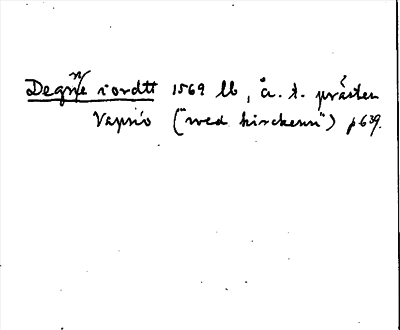 Degne iordtt 1569 lb, å. t. prästen
Vapnö ("wed kirckenn") p 639.